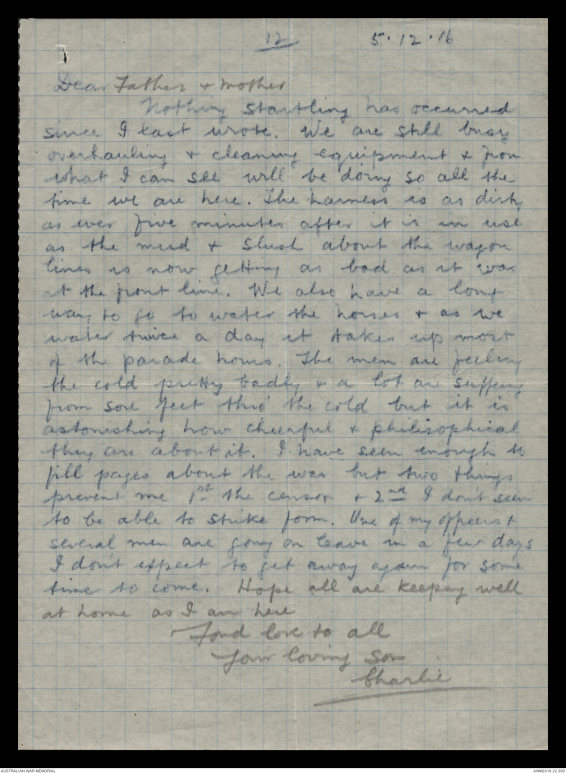 12
5.12.16
Dear Father & Mother
Nothing startling has occurred
since I last wrote. We are still busy
overhauling & cleaning equipment & from
what I can see will be doing so all the
time we are here. The harness is as dirty
as ever five minutes after it is in use
as the mud & slush about the wagon
lines is now getting as bad as it was
at the front line. We also have a long
way to go to water the horses & as we
water twice a day it takes up most
of the parade hours. The men are feeling
the cold pretty badly & a lot are suffering
from sore feet thro' the cold but it is
astonishing how cheerful & philosophical
they are about it. I have seen enough to
fill pages about the war but two things
prevent me 1st the censor & 2nd I don't seem
to be able to strike form. One of my officers &
several men are going on leave in a few days
I don't expect to get away again for some
time to come. Hope all are keeping well
at home as I am here
Fond love to all
Your loving Son
Charlie
AUSTRALIAN WAR MEMORIAL